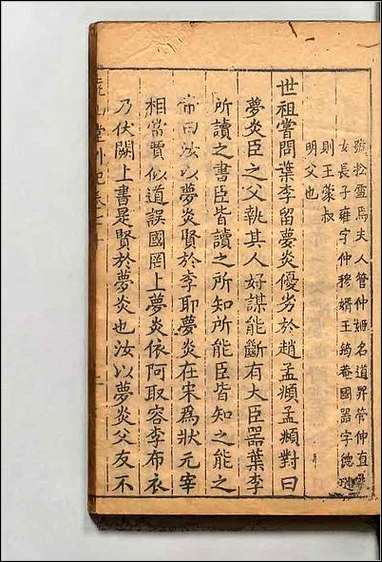 雖松雪焉夫人管仲姬名道昇管仲直
女長子雍字仲穆婿王筠菴國器字德璉
則王蒙叔
明父也
世祖嘗問葉李留夢炎優劣於趙孟頫孟頫對曰
夢炎臣之父執其人好謀能斷有大臣噐葉李
所讀之書臣皆讀之所知所能臣皆知之能之
帝曰汝以夢炎賢於李耶夢炎在宋為狀元宰
相當賈似道誤國罔上夢炎依阿取容李布衣
乃伏闕上書是賢於夢炎也汝以夢炎父友不